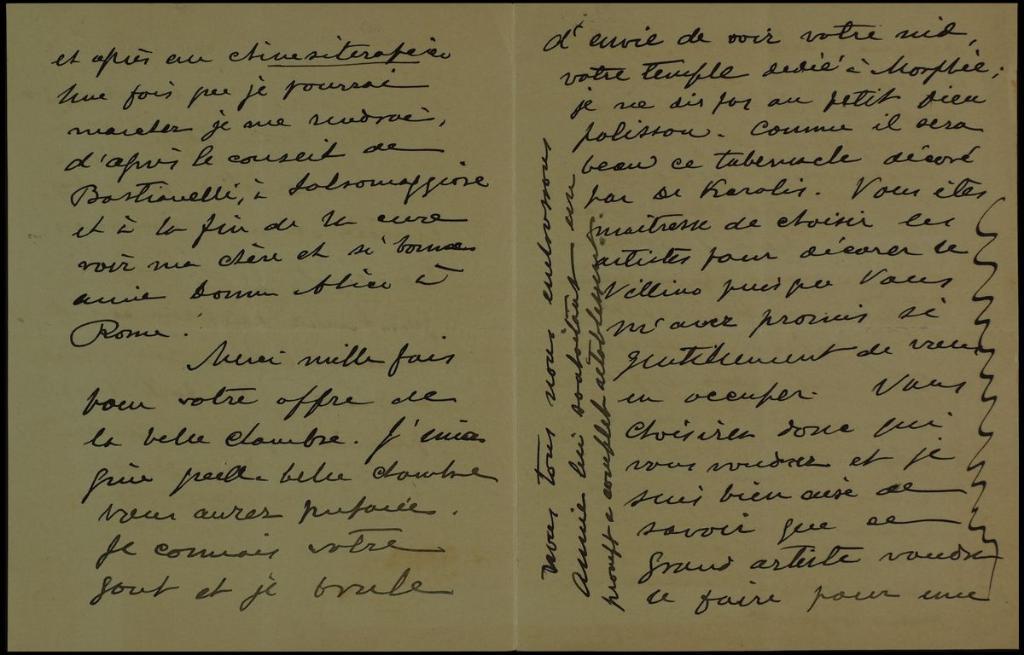 et après au chinesiterapico
Une fois que je pourrai
marcher je me rendrai,
d'après le conseil de
Bastianelli, à Salsomaggiore
et à la fin de la cure
voir ma chère et si bonne
amie Donna Alice à
Rome.
Merci mille fois
pour votre offre de
la belle chambre. J'ima
gine quelle belle chambre
vous aurez preparée.
Je connais votre
gout et je brule
d'envie de voir votre nid,
votre temple dedié à Morphée;
je ne dis pas au petit dieu
polisson. Comme il sera
beau ce tabernacle décoré
par De Karolis. Vous êtes
maitresse de choisir les
artistes pour décorer le
Villino puisque Vous
m'avez promis si
gentillement de vous
en occuper. Vous
choisirez donc qui
vous voudrez et je
suis bien aise de
savoir que ce
grand artiste voudra
le faire pour une
nous tous nous embrassons
Annie lui souhaitant un
prompt et complet rétablissement